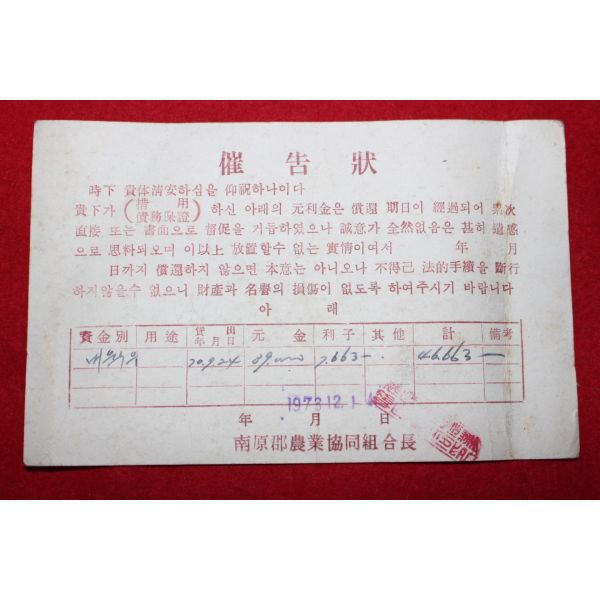 催告狀
時下 貴体淸安하심을 仰祝하나이다
貴下가 (借用 債務保證) 하신 아래의 元利金은 償還 期日이 經過되어 累次
直接 또는 書面으로 督促을 거듭하였으나 誠意가 全然없음은 甚히 遺感
으로 思料되오며 이以上 放置할수 없는 實情이여서 年 月
日까지 償還하지 않으면 本意는 아니오나 不得已 法的手續을 斷行
하지않을수 없으니 財產과 名譽의 損傷이 없도록 하여주시기 바랍니다
아 래
資金別 用途 貸出年月日 元金 利子 其他 計 備考
70.9.24 7.663 46.663
1973 12. 1
年 月 日
南原郡農業協同組合長